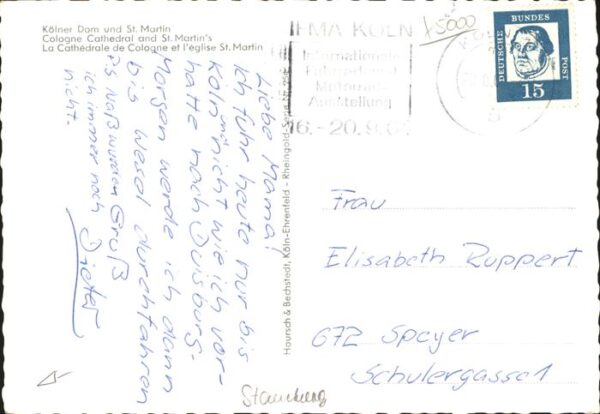 Kölner Dom und St. Martin
Cologne Cathedral and St. Martin's
La Cathédrale de Cologne et l'église St. Martin
Liebe Mama!
Ich fuhr heute nur bis
Köln nicht wie ich vor-
hatte nach Duisburg.
Morgen werde ich dann
bis Wesel durchfahren
Naß wurden
ich immer noch
nicht.
Gruß
Dieter
Hoursch & Bechstedt, Köln-Ehrenfeld - Rheingold-Serie Nr.
IFMA KÖLN
Internationale
Fahrrad- und
Motorrad-
Ausstellung
16.-20.9.
15000
DEUTSCHE
BUNDES
POST
15
Frau
Elisabeth Ruppert
672 Speyer
Schulergasse 1